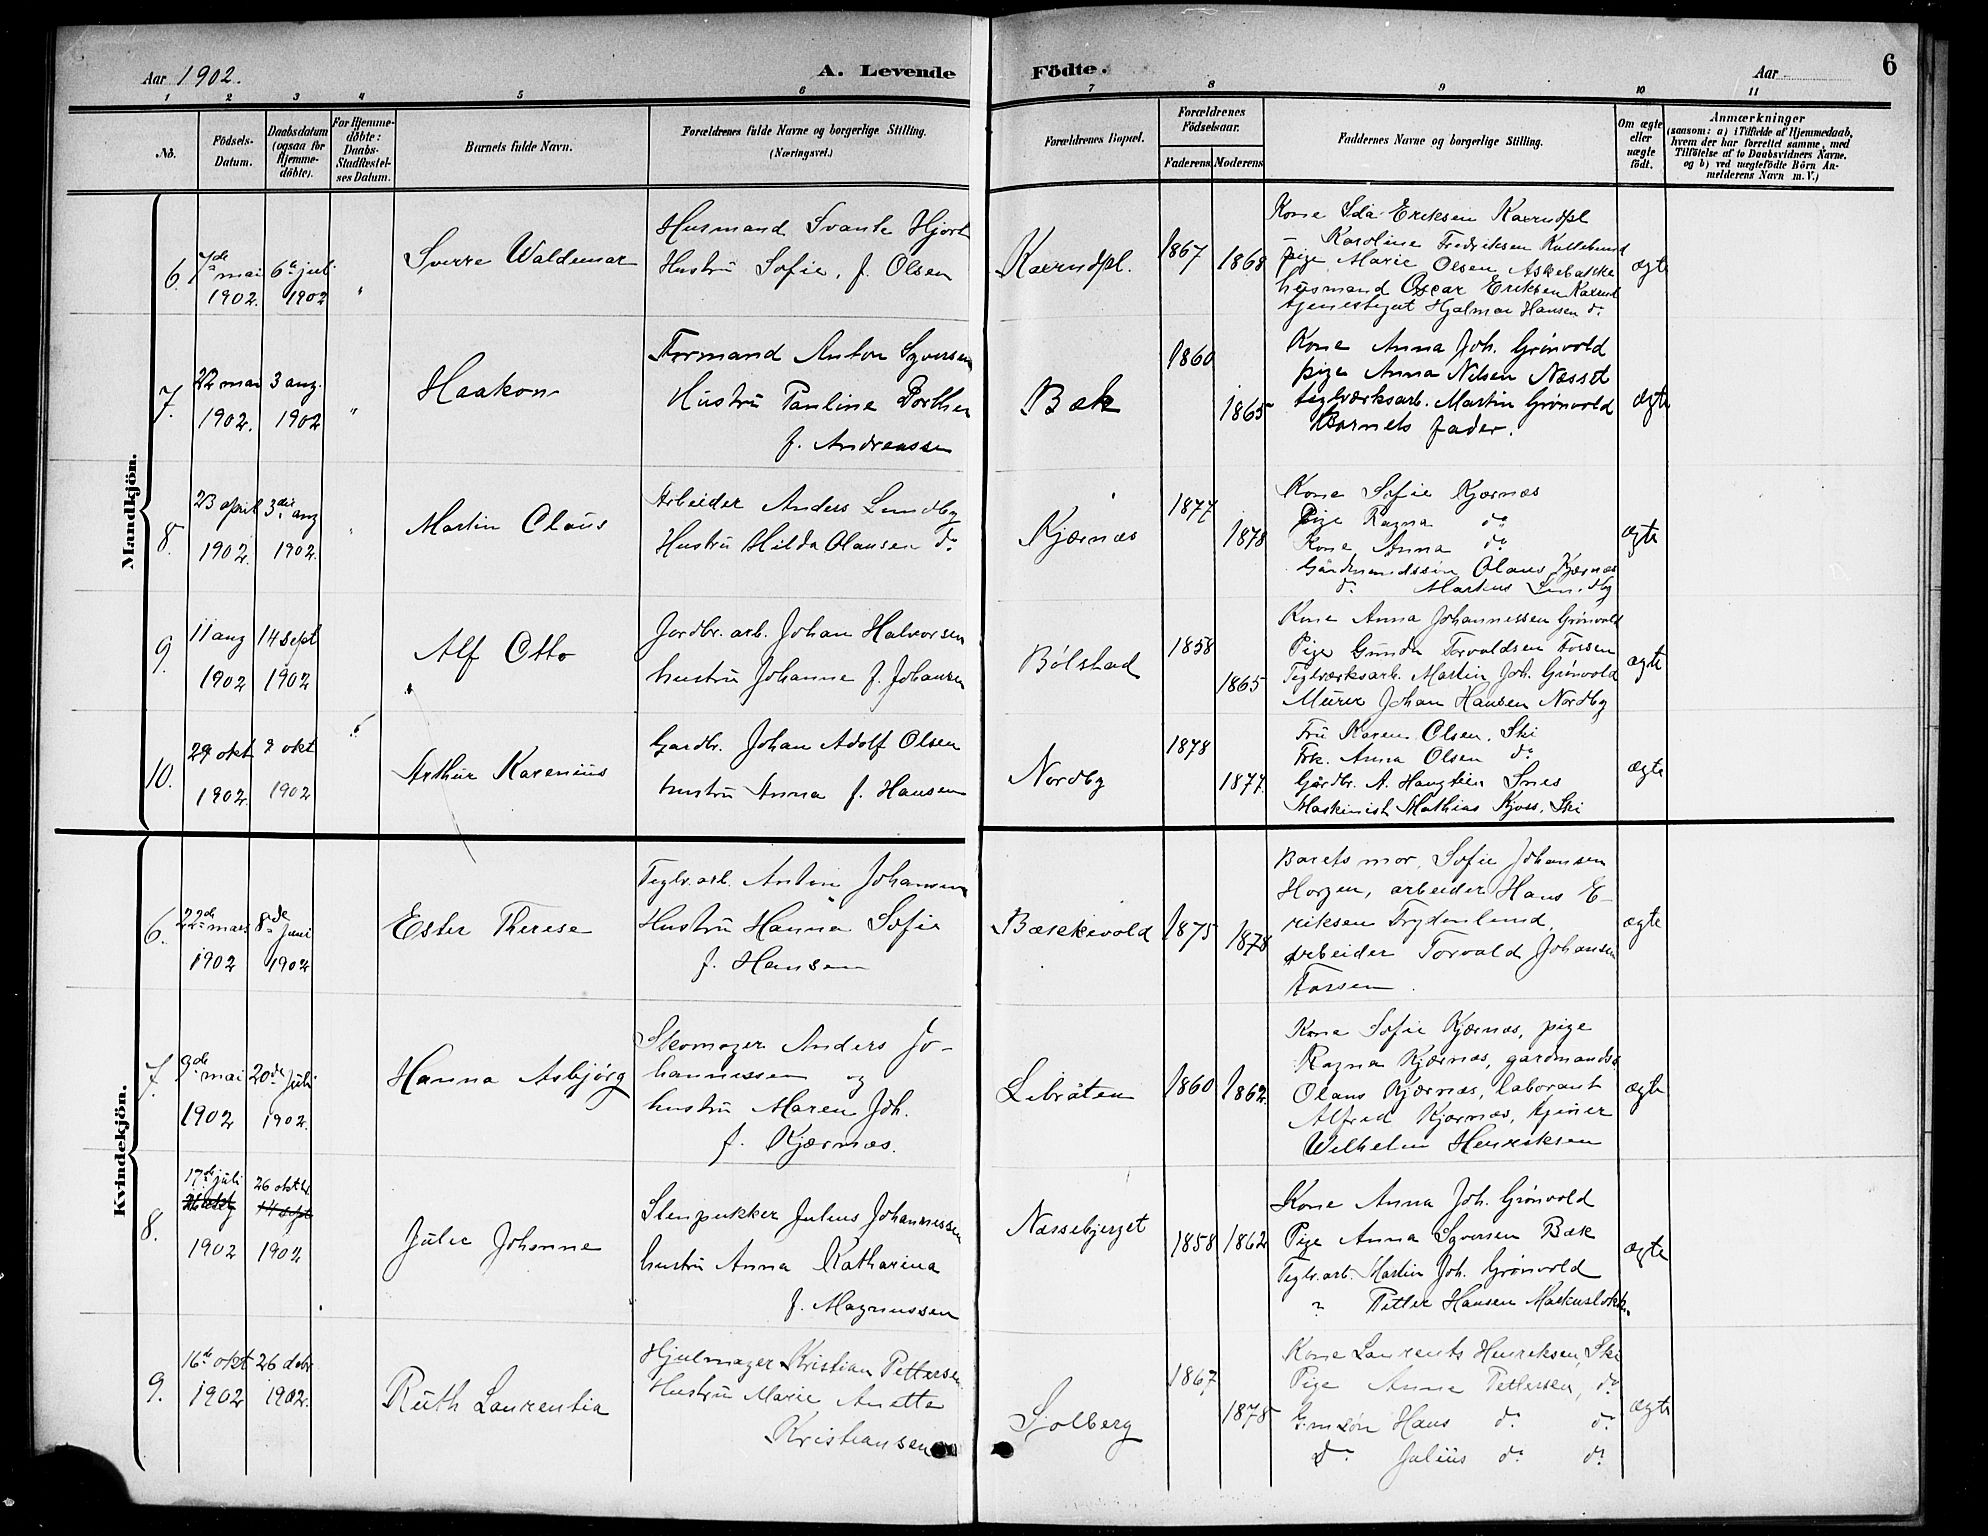 Aar 1902.
A. Levende
Födte.
Aar
6
1 2 3 4 5 6 7 8 9 10 11
No.
Födsels-
Datum.
Daabsdatum
(ogsaa for
Hjemme-
döbte).
For Hjemme-
döbte:
Daabs-
Stadfæstel-
ses Datum.
Barnets fulde Navn.
Forældrenes fulde Navne og borgerlige Stilling.
(Næringsvei.)
Forældrenes Bopæl.
Forældrenes
Födselsaar.
Faderens Moderens
Faddernes Navne og borgerlige Stilling.
Om ægte
eller
uægte
födt.
Anmærkninger
(saasom: a) i Tilfælde af Hjemmedaab,
hvem der har forrettet samme, med
Tilföielse af to Daabsvidners Navne,
og b) ved uægtefödte Börn An-
melderens Navn m. V.)
Mandkjön.
6.
7de mai
1902.
6te juli
1902
"
Sverre Waldemar
Husmand Svante Hjort
Hustru Sofie, f. Olsen
Kærudpl.
1867
1868
Kone Ida Eriksen Kærudpl
– Karoline Fredriksen Kullebund
pige Marie Olsen Askebakke
husmand Oscar Eriksen Kærud
tjenestegut Hjalmar Hansen do
ægte
7.
22 mai
1902.
3 aug.
1902
"
Haakon
Formand Anton Syversen
Hustru Pauline Dorthea
f. Andreassen
Bæk
1860
1865
Kone Anna Joh. Grönvold
pige Anna Nilsen Næsset
teglværksarb. Martin Grönvold
Barnets fader.
ægte
8.
23 april
1902.
3die aug
1902.
"
Martin Claus
Arbeider Anders Lundby
Hustru Hilda Olausen do
Kjærnæs
1877
1878
Kone Sofie Kjærnæs
Pige Ragna do
Kone Anna do
Gårdmandssøn Olaus Kjærnæs
do Martius Lundby
ægte
9.
11 aug
1902
14 sept
1902
Alf Otto
Jordbr. arb. Johan Halvorsen
hustru Johanne f. Johansen
Bölstad
1858
1865
Kone Anna Johannessen Grönvold
Pige Gunda Torvaldsen Forsen
Teglværksarb. Martin Joh. Grönvold
Murer Johan Hansen Nordby
ægte
10.
29 okt
1902.
9 okt
1902
Arthur Karenius
Gardbr. Johan Adolf Olsen
hustru Anna f. Hansen
Nordby
1878
1877.
Fru Karen Olsen, Ski
Frk. Anna Olsen do
Gårdbr. A. Haugtien Snes
Maskinist Mathias Kjoss, Ski
ægte
Kvindekjön.
6.
22de mars
1902
8de juni
1902
Ester Therese
Teglv. arb. Anton Johansen
Hustru Hanna Sofie
f. Hansen
Bækkevold
1875
1878
Barets mor, Sofie Johansen
Horgen, arbeider Hans E-
riksen Frydenlund,
arbeider Torvald Johansen
Forsen
ægte
7.
9de mai
1902
20de juli
1902.
Hanna Asbjörg
Skomager Anders Jo-
hannessen og
hustru Maren Joh.
f. Kjærnæs.
Libråten
1860
1862.
Kone Sofie Kjærnæs, pige
Ragna Kjærnæs, gardmands.
Olaus Kjærnæs, laborant
Alfred Kjærnæs, tjener
Wilhelm Henriksen
ægte
8.
17de juli
1902
26 oktbr.
14 sept
1902
Julie Johanne
Stenpukker Julius Johannessen
hustru Anna Katharina
f. Magnussen
Næssebjerget
1858
1862
Kone Anna Joh. Grönvold
Pige Anna Syversen Bæk
Teglv. arb. Martin Joh. Grönvold
" Petter Hansen
ægte
9.
16de okt
1902
26 debr
1902.
Ruth Laurentia
Hjulmager Kristian Pettersen
Hustru Marie Anette
Kristiansen
Solberg
1867
1878
Kone Laurents Henriksen, Ski
Pige Anna Pettersen, do
Gmsön Hans do do
Do Julius do do
ægte